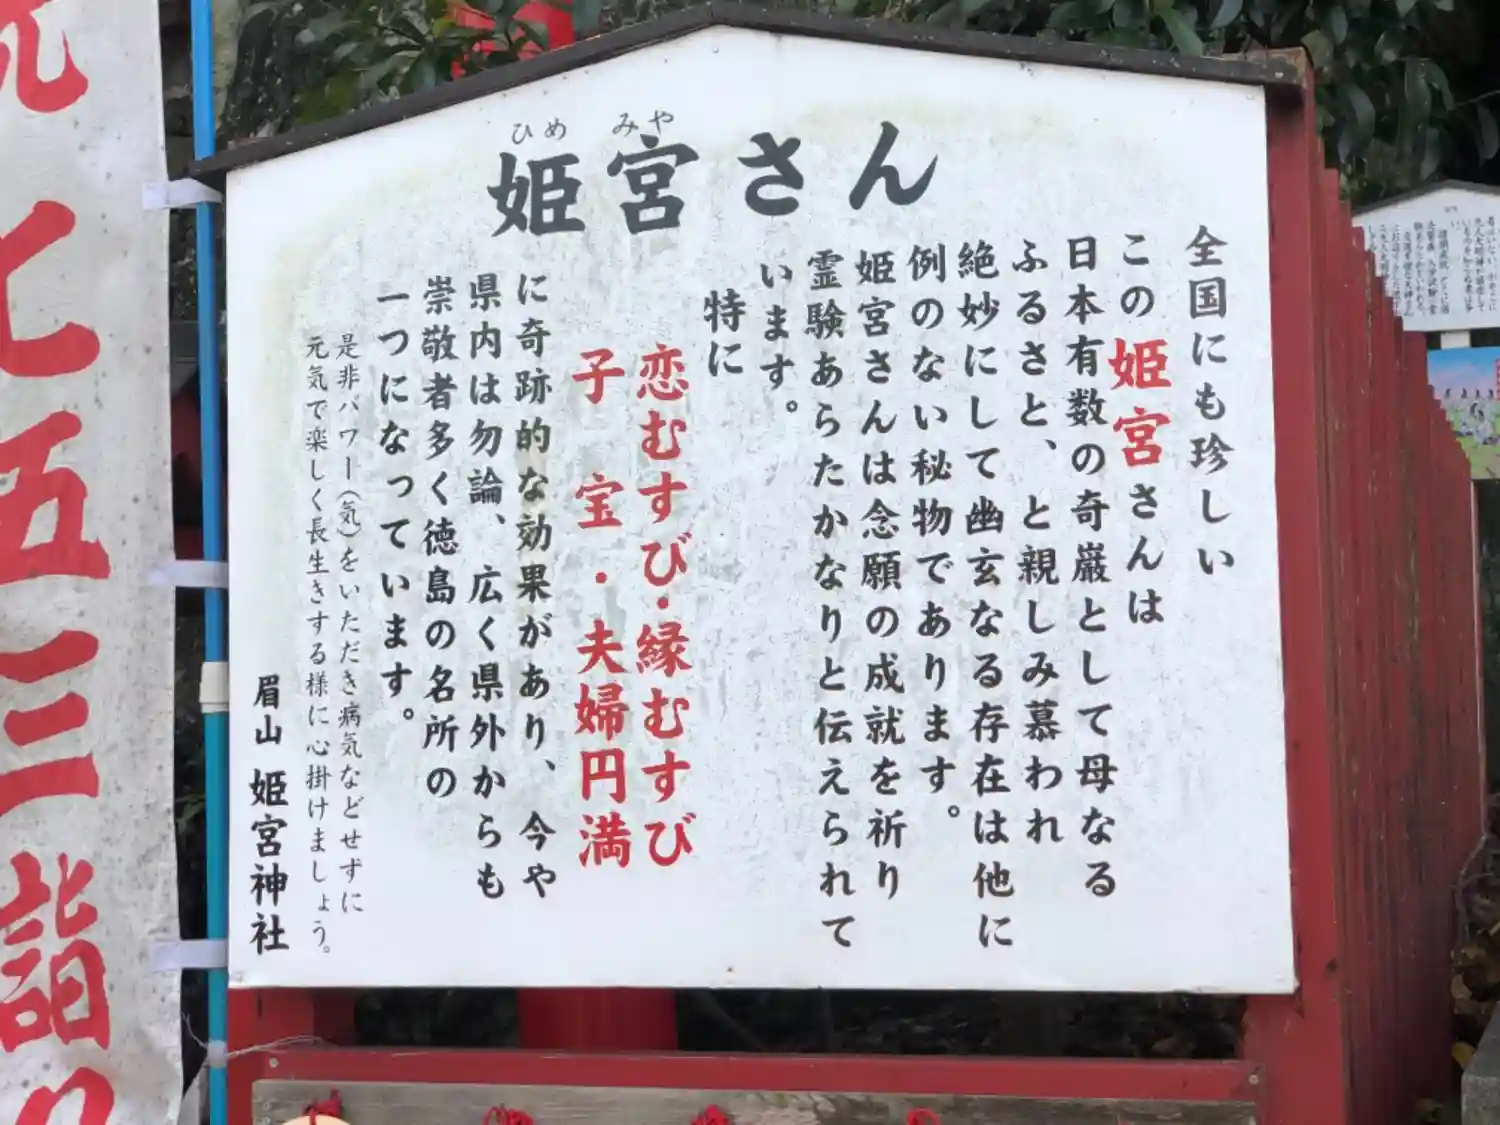 姫宮さん
ひめ みや
全国にも珍しい
この姫宮さんは
日本有数の奇巌として母なる
ふるさと、と親しみ慕われ
絶妙にして幽玄なる存在は他に
例のない秘物であります。
姫宮さんは念願の成就を祈り
霊験あらたかなりと伝えられて
います。
特に
恋むすび・縁むすび
子宝・夫婦円満
に奇跡的な効果があり、今や
県内は勿論、広く県外からも
崇敬者多く徳島の名所の
一つになっています。
是非パワー(気)をいただき病気などせずに
元気で楽しく長生きする様に心掛けましょう。
眉山 姫宮神社
七五三詣